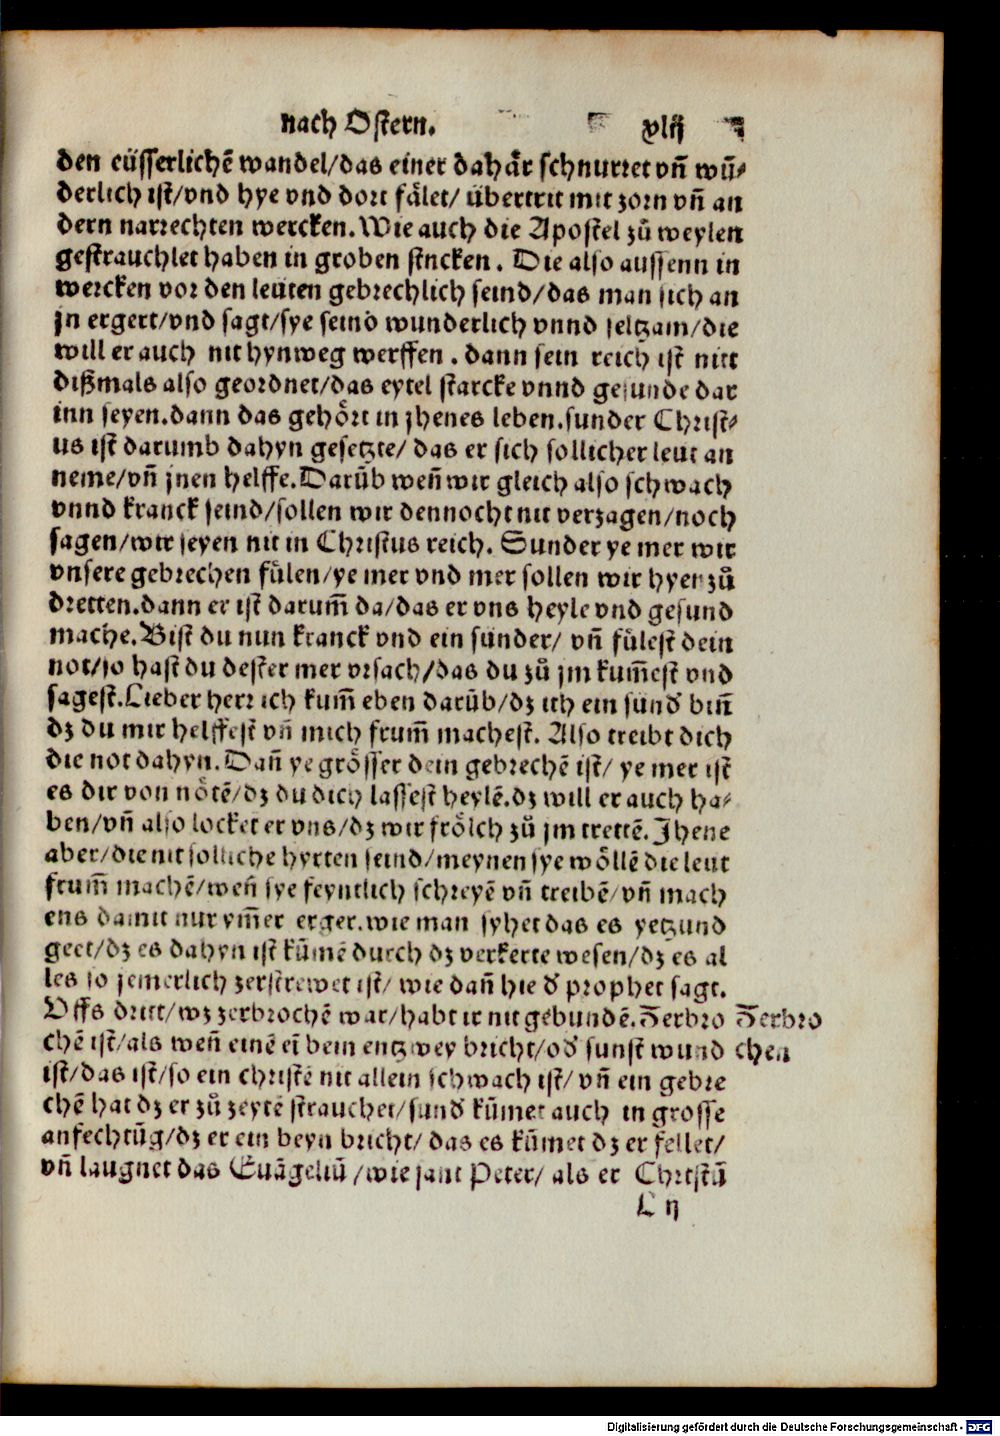 nach Ostern. xliij
den eüsserlichē wandel/das einer dahår schnurret vñ wū-
derlich ist/vnd hye vnd dort fålet/ übertrit mit zorn vñ an
dern narrechten wercken. Wie auch die Apostel zů weylen
gestrauchlet haben in groben stucken. Die also aussenn in
wercken vor den leüten gebrechlich seind/das man sich an
jn ergert/vnd sagt/sye seind wunderlich vnnd seltzam/die
will er auch nit hynweg werffen. dann sein reich ist nitt
dißmals also geordnet/das eytel starcke vnnd gesunde dar
inn seyen.dann das gehört in jhenes leben.sunder Christ-
us ist darumb dahyn gesetzte/ das er sich sollicher leut an
neme/vñ jnen helffe.Darūb weñ wir gleich also schwach
vnnd kranck seind/sollen wir dennocht nit verzagen/noch
sagen/wir seyen nit in Christus reich. Sunder ye mer wir
vnsere gebrechen fülen/ye mer vnd mer sollen wir hyer zů
dretten.dann er ist darum̄ da/das er vns heyle vnd gesund
mache.Bist du nun kranck vnd ein sünder/ vñ fülest dein
not/so hast du dester mer vrsach/das du zů jm kum̄est vnd
sagest.Lieber herr ich kum̄ eben darūb/dz ich ein sünd̕ biñ
dz du mir helffest vñ mich frum̄ machest. Also treibt dich
die not dahyn.Dañ ye grösser dein gebrechē ist/ ye mer ist
es dir von nötē/dz du dich lassest heylē.dz will er auch ha-
ben/vñ also locket er vns/dz wir frölch zů jm trettē.Jhene
aber/die nit solliche hyrten seind/meynen sye wöllē die leut
frum̄ machē/weñ sye feyntlich schreyē vñ treibē/vñ mach
ens damit nur ym̄er erger.wie man syhet das es yetzund
geet/dz es dahyn ist kūmē durch dz verkerte wesen/dz es al
les so jemerlich zerstrewet ist/ wie dañ hie d̕ prophet sagt.
Vffs dritt/wz zerbrochē war/habt ir nit gebundē.Zerbro Zerbro
chē ist/als weñ einē eī bein entzwey bricht/od̕ sunst wund chen
ist/das ist/so ein christē nit allein schwach ist/ vñ ein gebre
chē hat dz er zů zeytē strauchet/sund̕ kūmet auch in grosse
anfechtūg/dz er ein beyn bricht/ das es kūmet dz er fellet/
vñ laugnet das Euāgeliū/wie sant Peter/ als er Christū
L ij
Digitalisierung gefördert durch die Deutsche Forschungsgemeinschaft - DFG